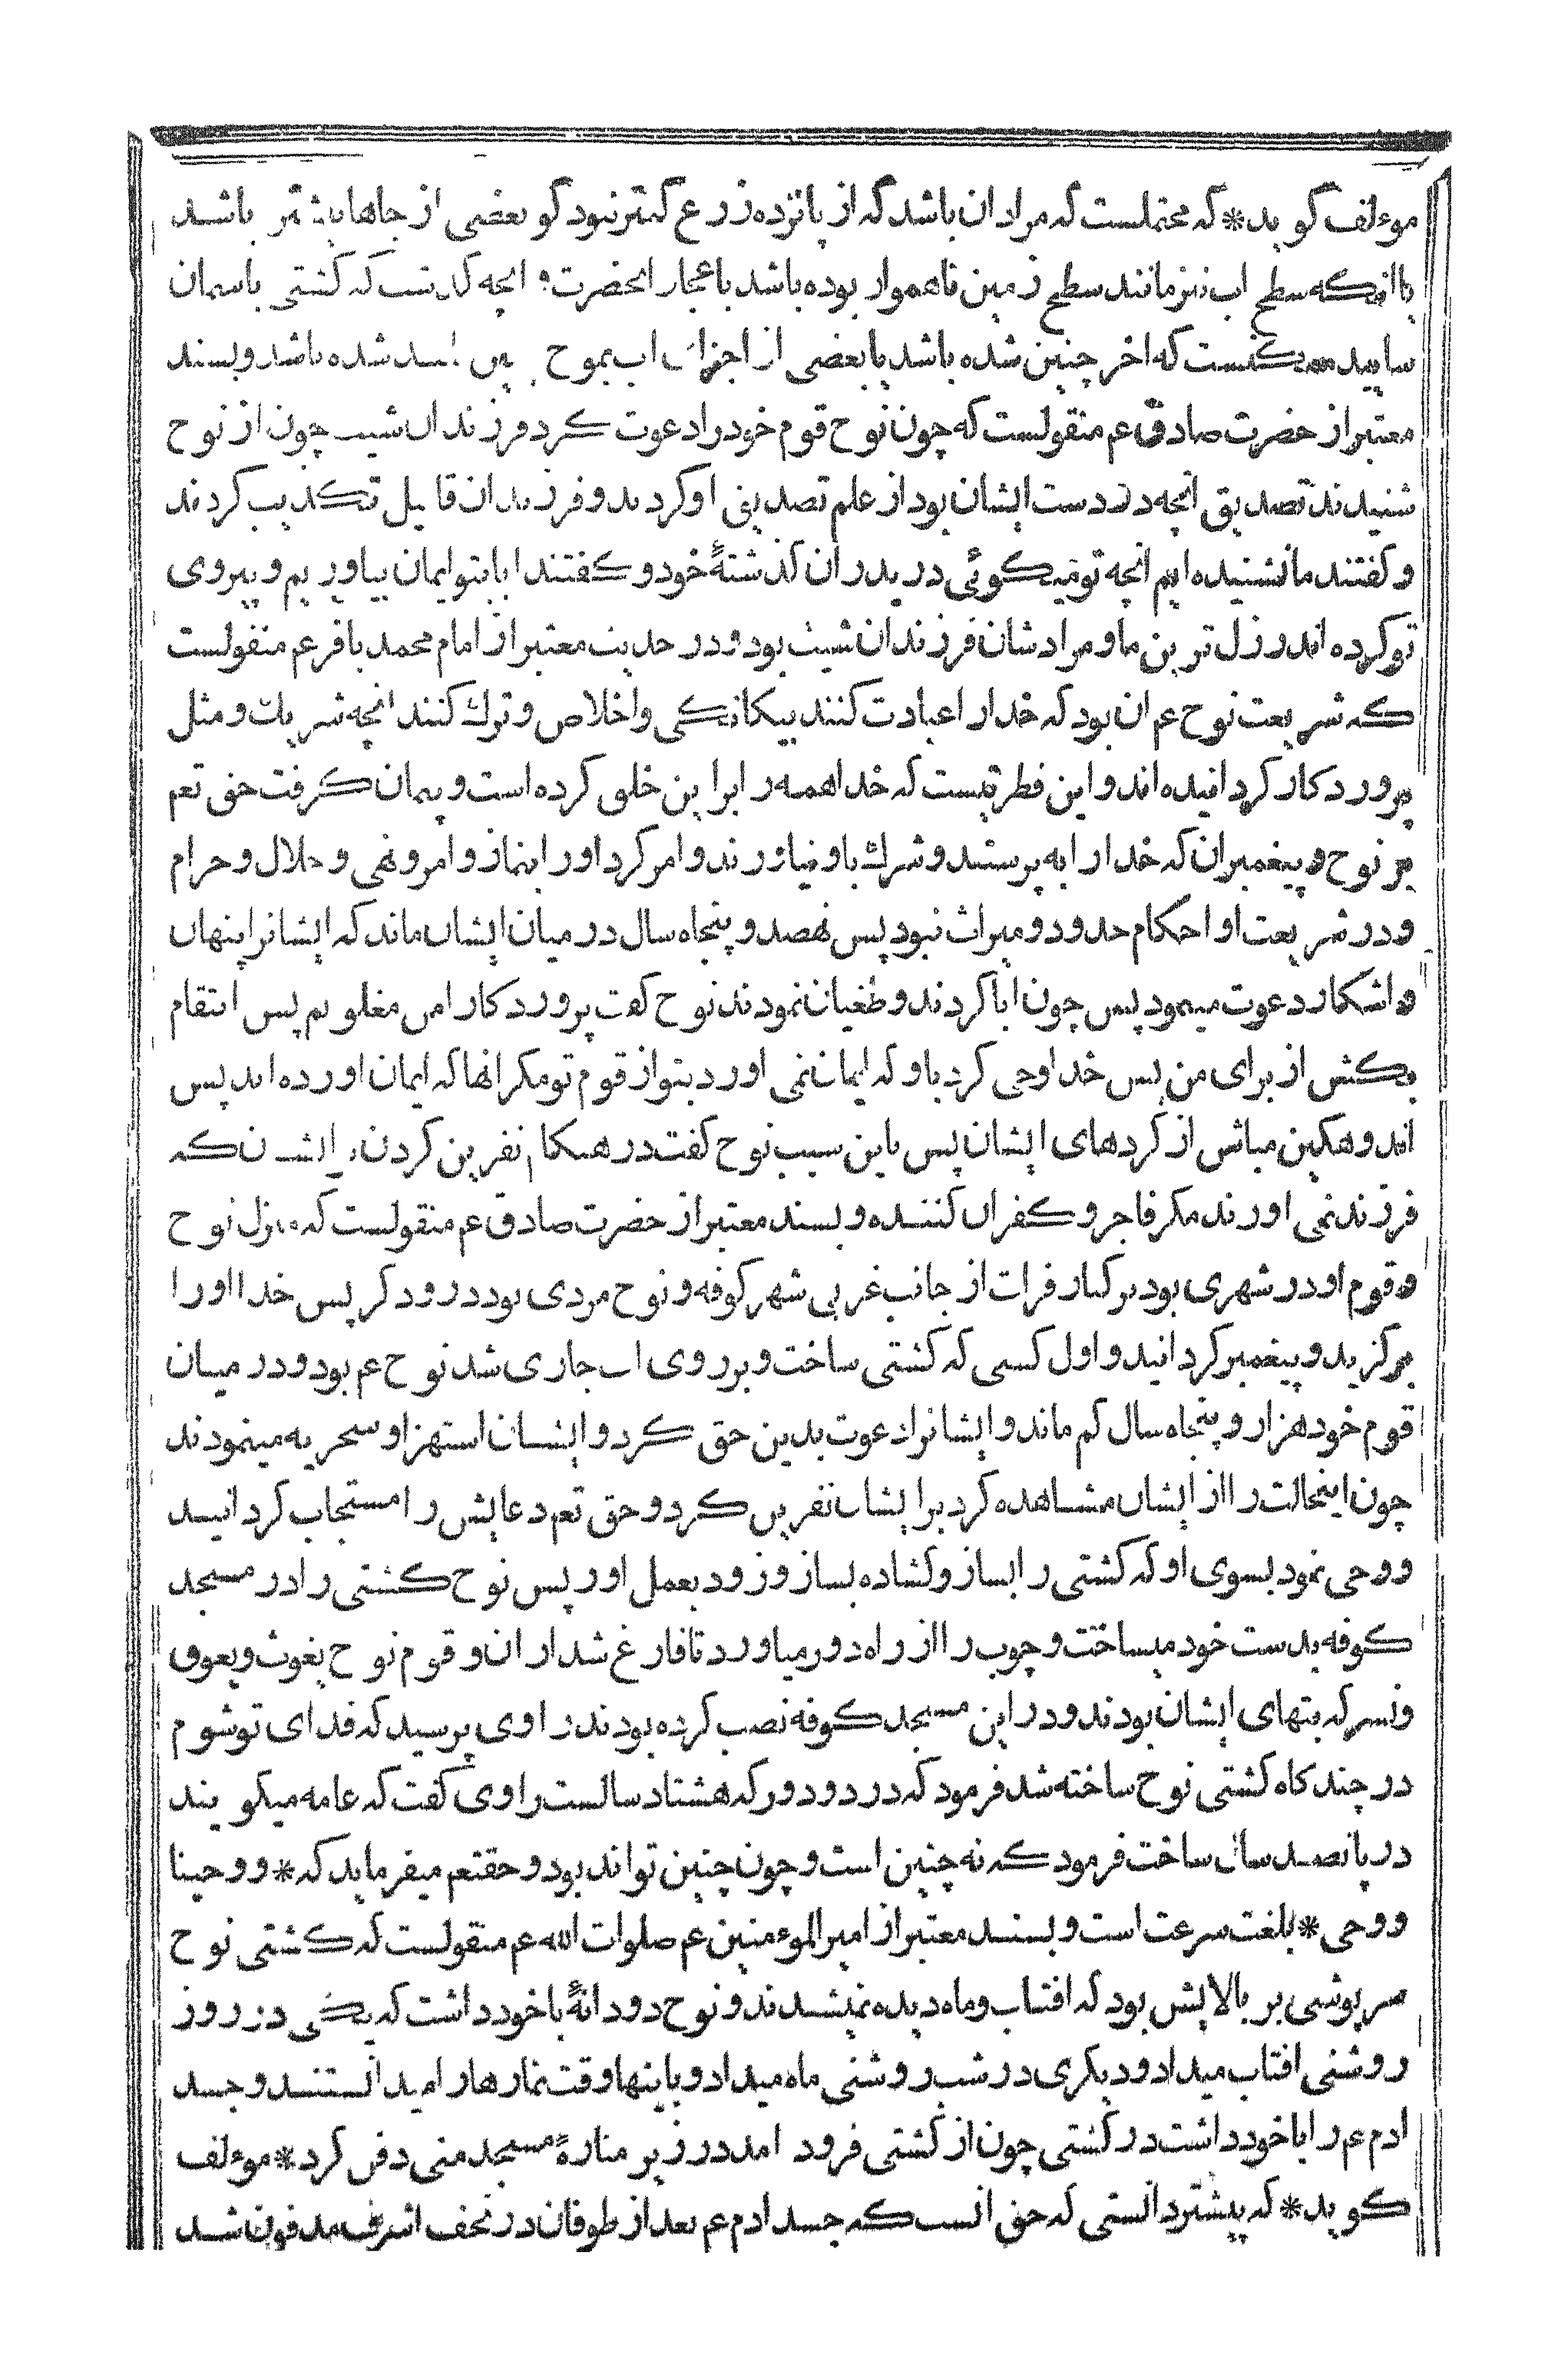 موءلف کوید* که محتملست که مراد ان باشد که از پانزده زرع کمتر نبود کو بعضی از جاها بیشتر باشد
با انکه سطح اب نیز مانند سطح زمین ناهموار بوده باشد باعجاز انحضرت و انچه کذشت که کشتی باسمان
سایید ممکنست که اخر چنین شده باشد یا بعضی از اجزای اب بموج شده باشد و بسند
معتبر از حضرت صادق عم منقولست که چون نوح قوم خود را دعوت کرد فرزندان شیث چون از نوح
شنیدند تصدیق انچه در دست ایشان بود از علم تصدیق او کردند و فرزندان قابیل تکذیب کردند
و کفتند ما نشنیده ایم انچه تو میکوئی در پدران کذشتهٔ خود و کفتند ایا بتو ایمان بیاوریم و پیروی
تو کرده اند رزل ترین ما و مرادشان فرزندان شیث بود و در حدیث معتبر از امام محمد باقر عم منقولست
که شریعت نوح عم ان بود که خدا را عبادت کنند بیکانکی و اخلاص و ترك کنند انچه شریك و مثل
پروردکار کردانیده اند و این فطرتیست که خدا همه را برا ین خلق کرده است و پیمان کرفت حق تعم
بر نوح و پیغمبران که خدا را به پرستند و شرك باو نیاورند و امر کرد او را بنماز و امر و نهی و حلال و حرام
و در شریعت او احکام حدود و میراث نبود پس نهصد و پنجاه سال در میان ایشان ماند که ایشانرا پنهان
و اشکار دعوت مینمود پس چون ابا کردند و طغیان نمودند نوح کفت پروردکارا من مغلوبم پس انتقام
بکش از برای من پس خدا وحی کرد باو که ایمان نمی اورد بتو از قوم تو مکر انها که ایمان اورده اند پس
اندوهکین مباش از کردهای ایشان پس باین سبب نوح کفت در هنکام نفرین کردن بر ایشان که
فرزند نمی اورند مکر فاجر و کفران کننده و بسند معتبر از حضرت صادق عم منقولست که منزل نوح
و قوم او در شهری بود بر کنار فرات از جانب غربی شهر کوفه و نوح مردی بود درودکر پس خدا او را
برکزید و پیغمبر کردانید و اول کسی که کشتی ساخت و بر روی اب جاری شد نوح عم بود و در میان
قوم خود هزار و پنجاه سال کم ماند و ایشانرا دعوت بدین حق کرد و ایشان استهزا و سخریه مینمودند
چون اینحالت را از ایشان مشاهده کرد بر ایشان نفرین کرد و حق تعم دعایش را مستجاب کردانید
و وحی نمود بسوی او که کشتی را بساز و کشاده بساز و زود بعمل اور پس نوح کشتی را در مسجد
کوفه بدست خود میساخت و چوب را از راه دور میاورد تا فارغ شد از ان و قوم نوح یغوث و یعوق
و نسر که بتهای ایشان بودند و در این مسجد کوفه نصب کرده بودند راوی پرسید که فدای تو شوم
در چند کاه کشتی نوح ساخته شد فرمود که در دو دور که هشتاد سالست راوی کفت که عامه میکویند
در پانصد سال ساخت فرمود که نه چنین است و چون چنین تواند بود و حقتعم میفرماید که* و وحینا
و وحی* بلغت سرعت است و بسند معتبر از امیر الموءمنین عم صلوات الله عم منقولست که کشتی نوح
سرپوشی بر بالایش بود که افتاب و ماه دیده نمیشدند و نوح دو دانهٔ با خود داشت که یکی در روز
روشنی افتاب میداد و دیکری در شب روشنی ماه میداد و باینها وقت نمازها را میدانستند و جسد
ادم عم را با خود داشت در کشتی چون از کشتی فرود امد در زیر منارهٔ مسجد منی دفن کرد* موءلف
کوید* که پیشتر دانستی که حق انست که جسد ادم عم بعد از طوفان در نجف اشرف مدفون شد